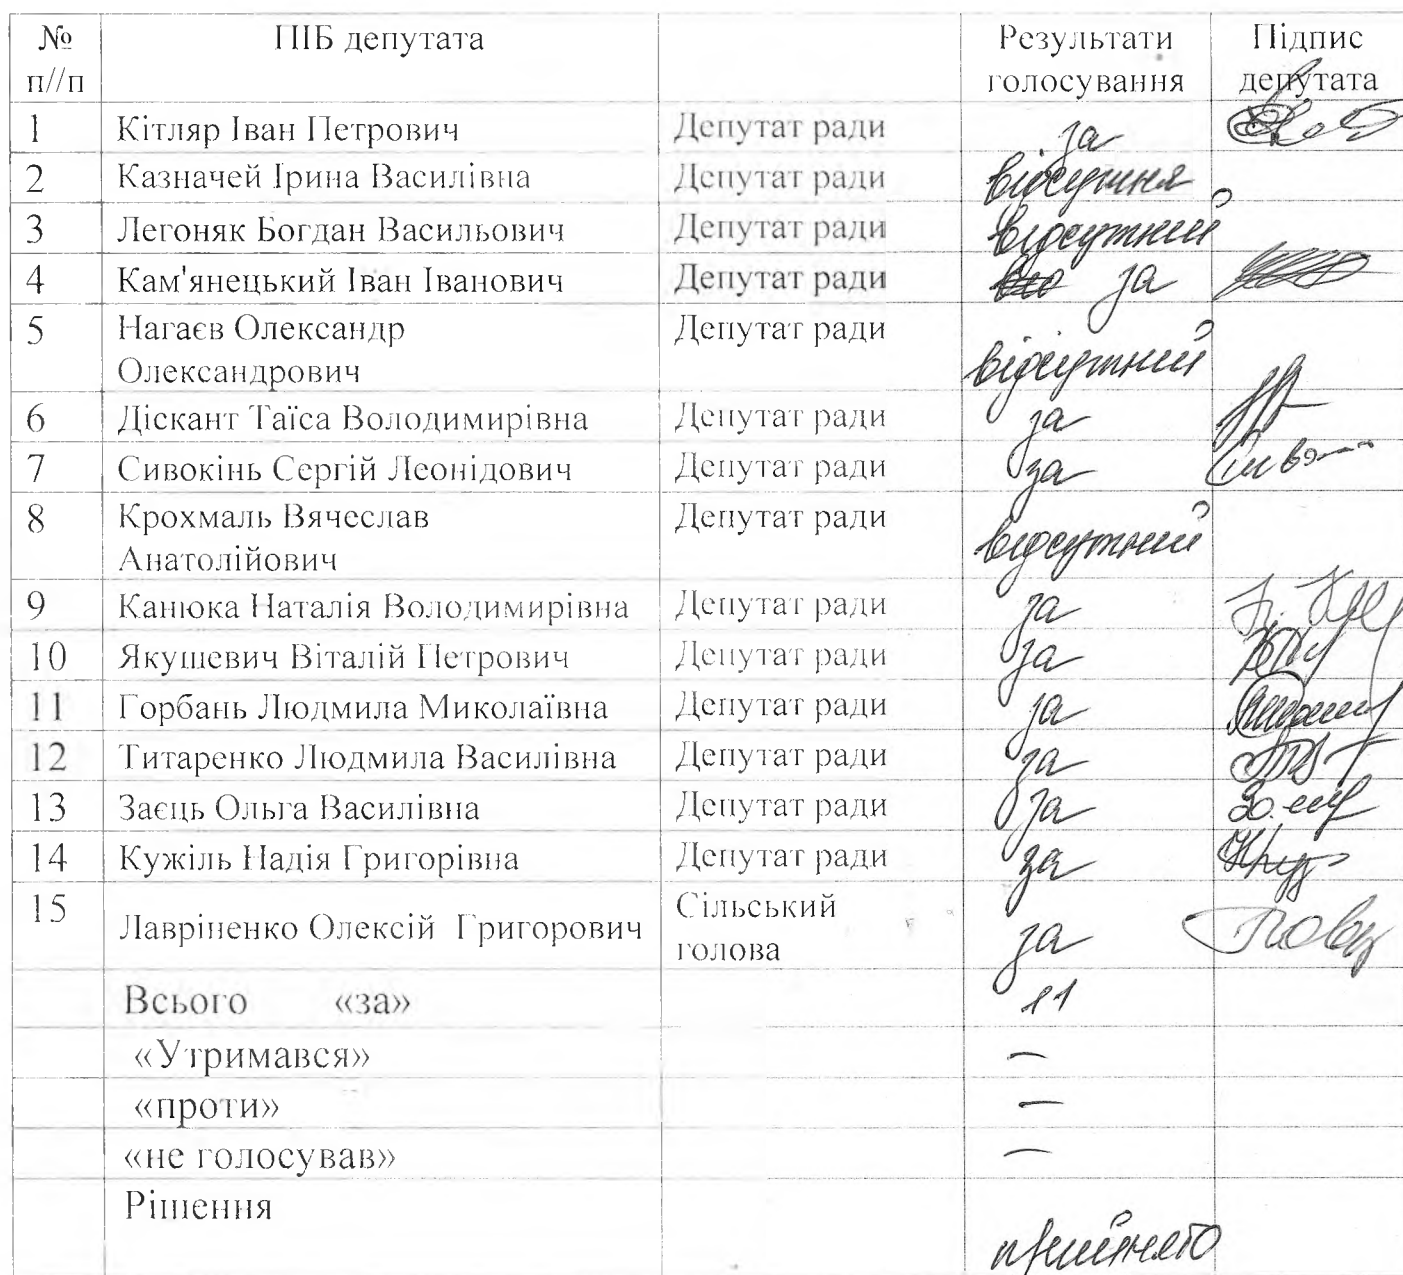 № п//п ПІБ депутата Результати голосування Підпис депутата
1 Кітляр Іван Петрович Депутат ради за
2 Казначей Ірина Василівна Депутат ради відсутня
3 Легоняк Богдан Васильович Депутат ради відсутний
4 Кам'янецький Іван Іванович Депутат ради за
5 Нагаєв Олександр Олександрович Депутат ради відсутний
6 Діскант Таїса Володимирівна Депутат ради за
7 Сивокінь Сергій Леонідович Депутат ради за
8 Крохмаль Вячеслав Анатолійович Депутат ради відсутний
9 Канюка Наталія Володимирівна Депутат ради за
10 Якушевич Віталій Петрович Депутат ради за
11 Горбань Людмила Миколаївна Депутат ради за
12 Титаренко Людмила Василівна Депутат ради за
13 Заєць Ольга Василівна Депутат ради за
14 Кужіль Надія Григорівна Депутат ради за
15 Лавріненко Олексій Григорович Сільський голова за
Всього «за» 11
«Утримався» –
«проти» –
«не голосував» –
Рішення прийнято